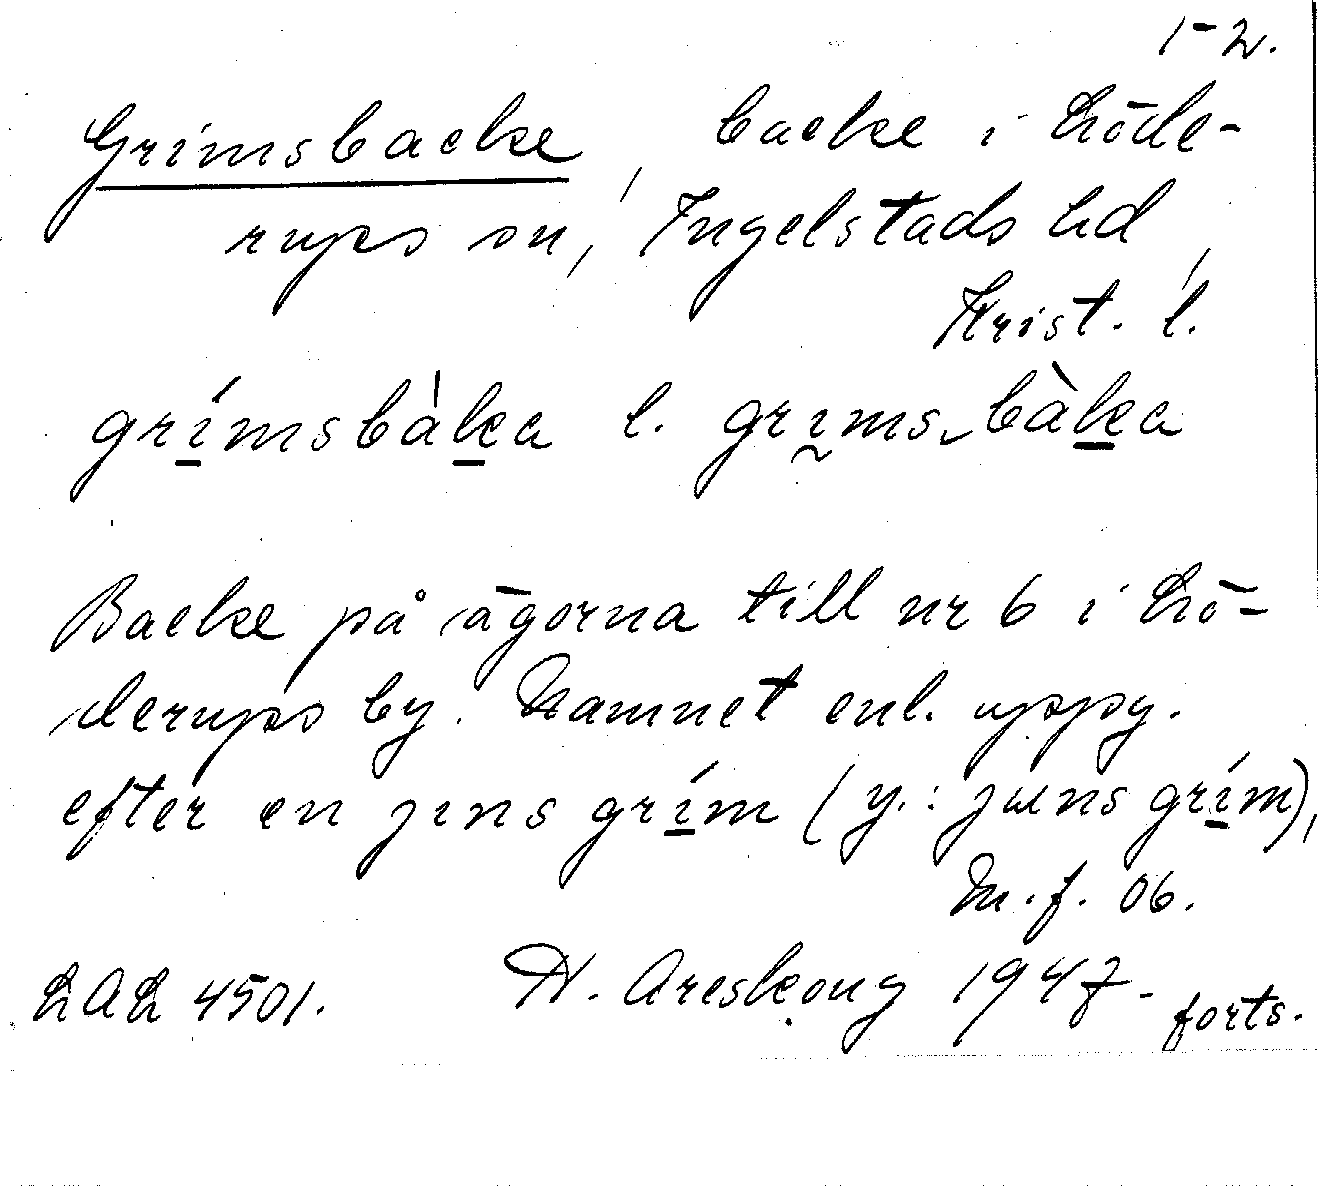 1-2.
Grimsbacke, backe i Löde-
rups sn, Ingelstads hd,
Krist. l.
grímsbàka l. grims-bàka
Backe på ägorna till nr 6 i Lö-
derups by. Namnet enl. uppg.
efter en jens grím (y.: jens grím),
M. f. 06.
LAL 4501. H. Areskoug 1947- forts.